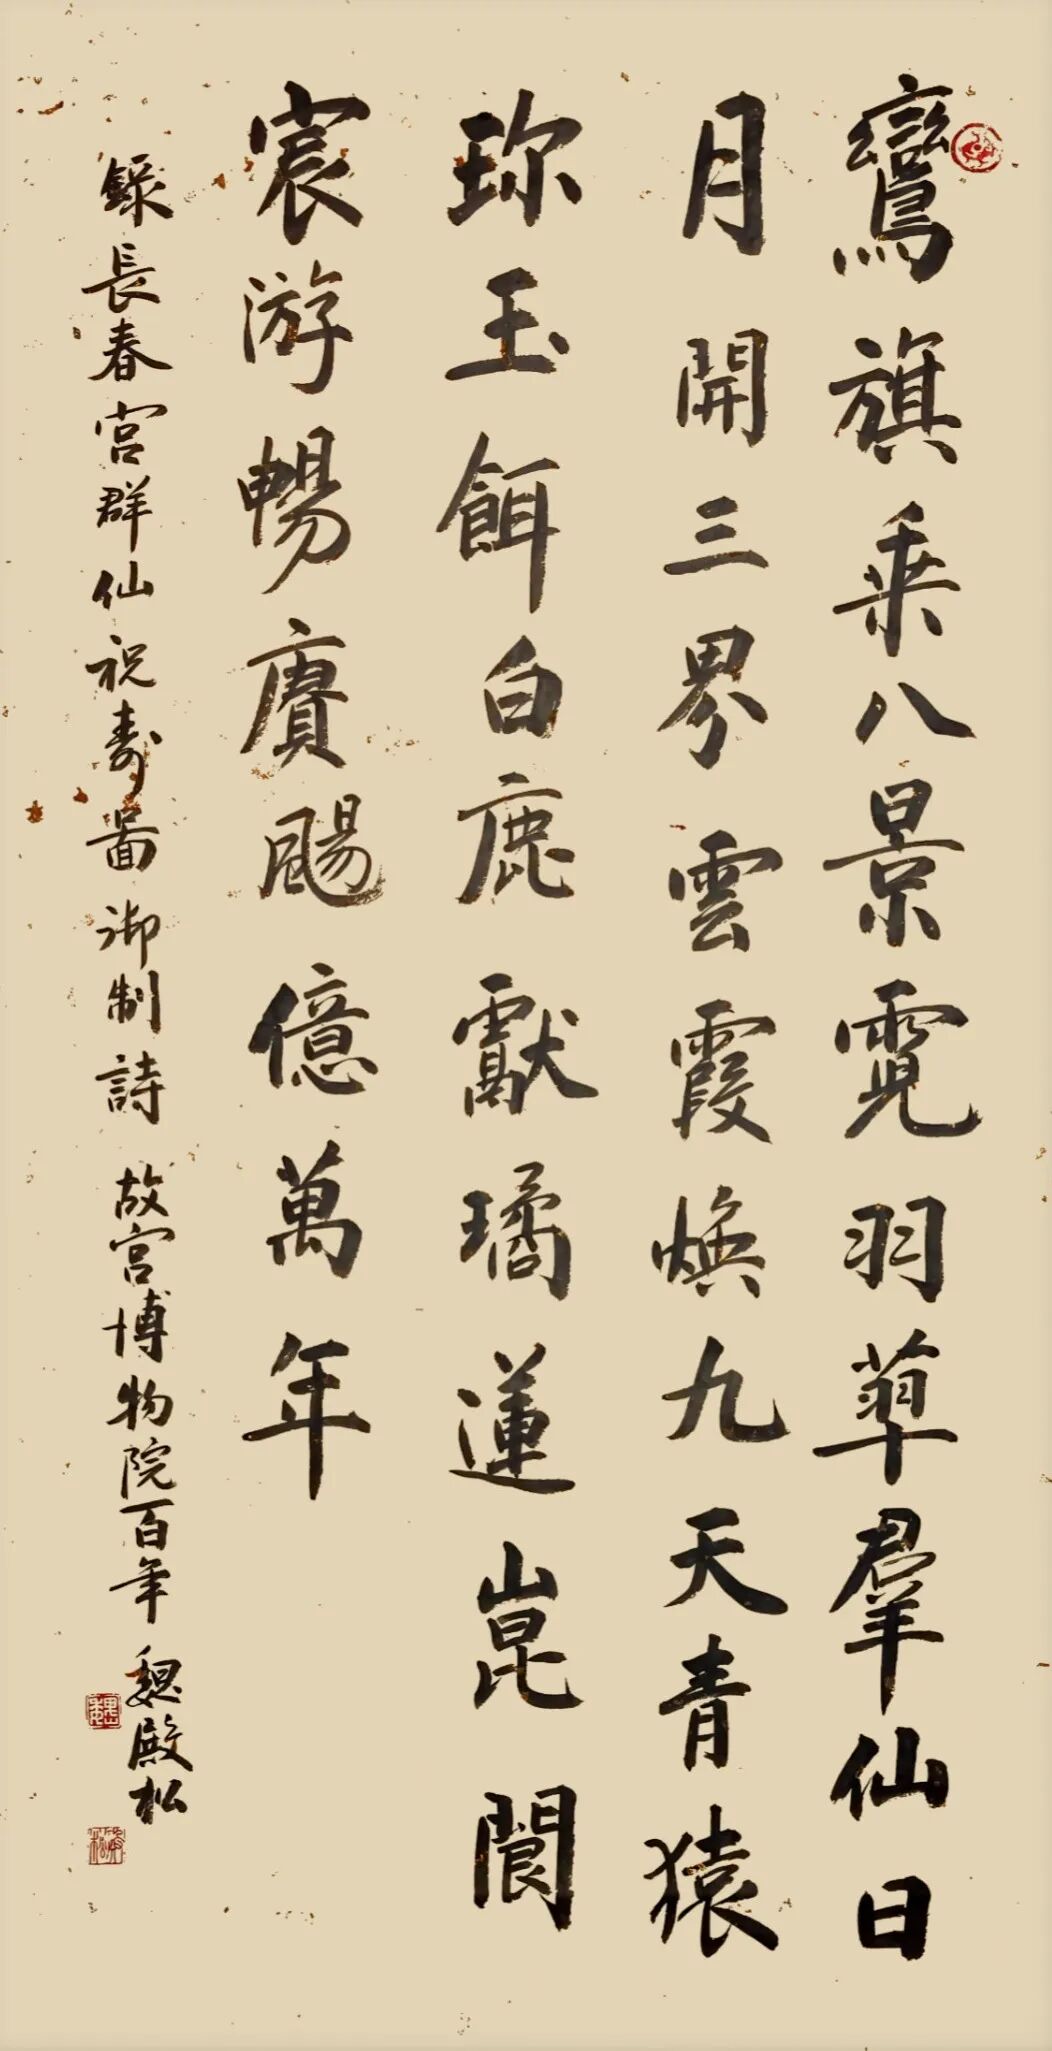 鸞旗乗八景霓羽萃羣仙日
月開三界雲霞煥九天青猿
珎玉餌白鹿獻璚蓮崑閬
宸游暢賡颺億萬年
錄長春宮群仙祝壽圖御制詩 故宮博物院百年 魏殿松